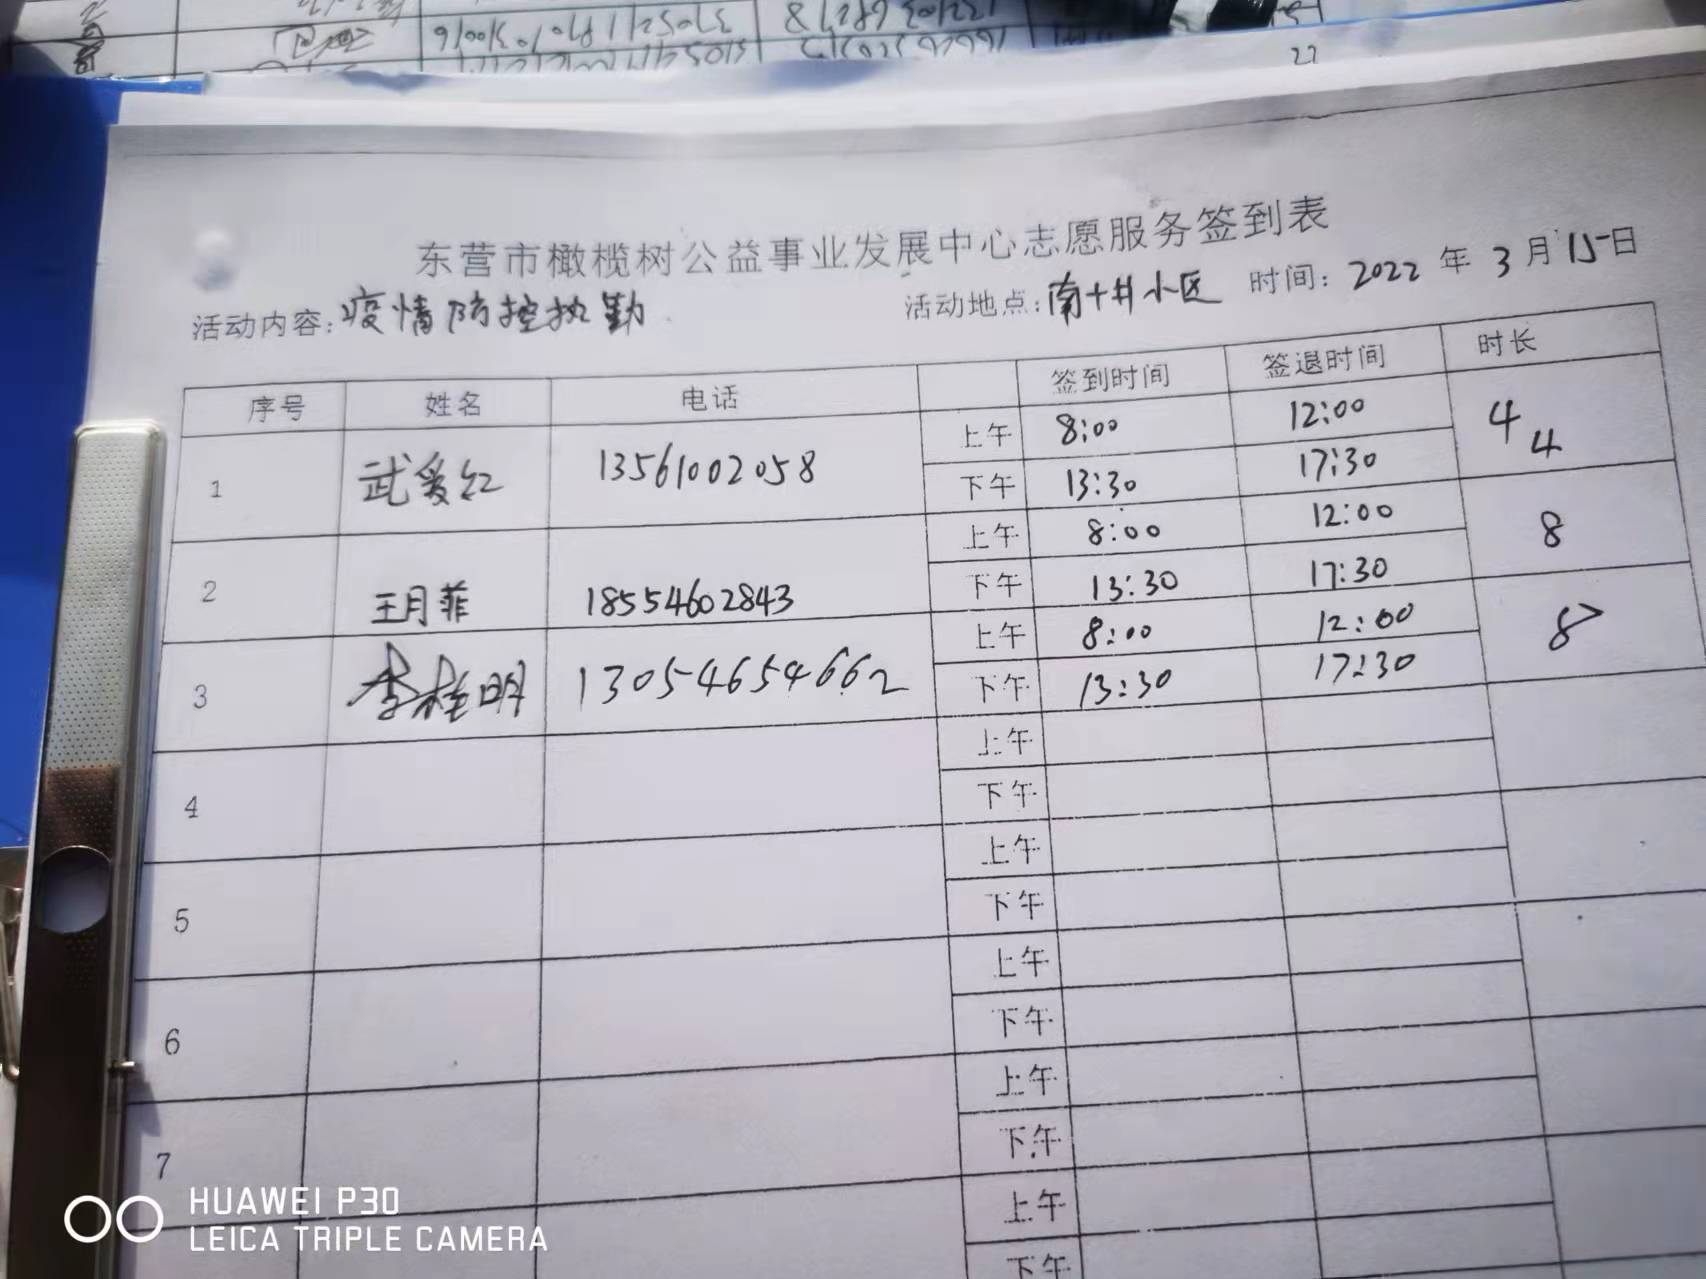 东营市橄榄树公益事业发展中心志愿服务签到表
活动内容:疫情防控执勤 活动地点:南十井小区 时间:2022年3月15日
序号 姓名 电话 签到时间 签退时间 时长
1 武爱红 13561002058 上午 8:00 12:00 4
下午 13:30 17:30 4
2 王月菲 18554602843 上午 8:00 12:00 8
下午 13:30 17:30
3 李桂明 13054654662 上午 8:00 12:00 8
下午 13:30 17:30
4 上午
下午
5 上午
下午
6 上午
下午
7 上午
下午
上午
下午
HUAWEI P30
LEICA TRIPLE CAMERA